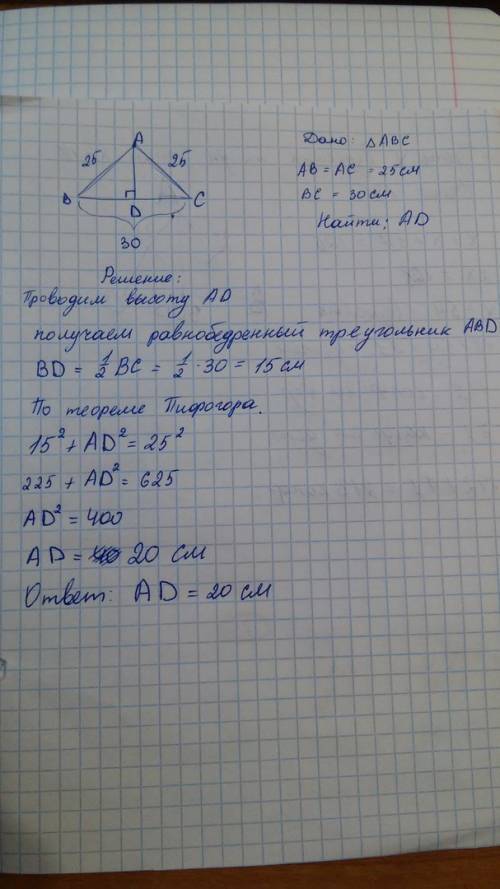 A
25
25
B
D
C
30
Дано: △ABC
AB = AC = 25 см
BC = 30 см
Найти: AD
Решение:
Проводим высоту AD
получаем равнобедренный треугольник ABD
BD = 1/2 BC = 1/2 · 30 = 15 см
По теореме Пифогора.
15² + AD² = 25²
225 + AD² = 625
AD² = 400
AD = 20 см
Ответ: AD = 20 см